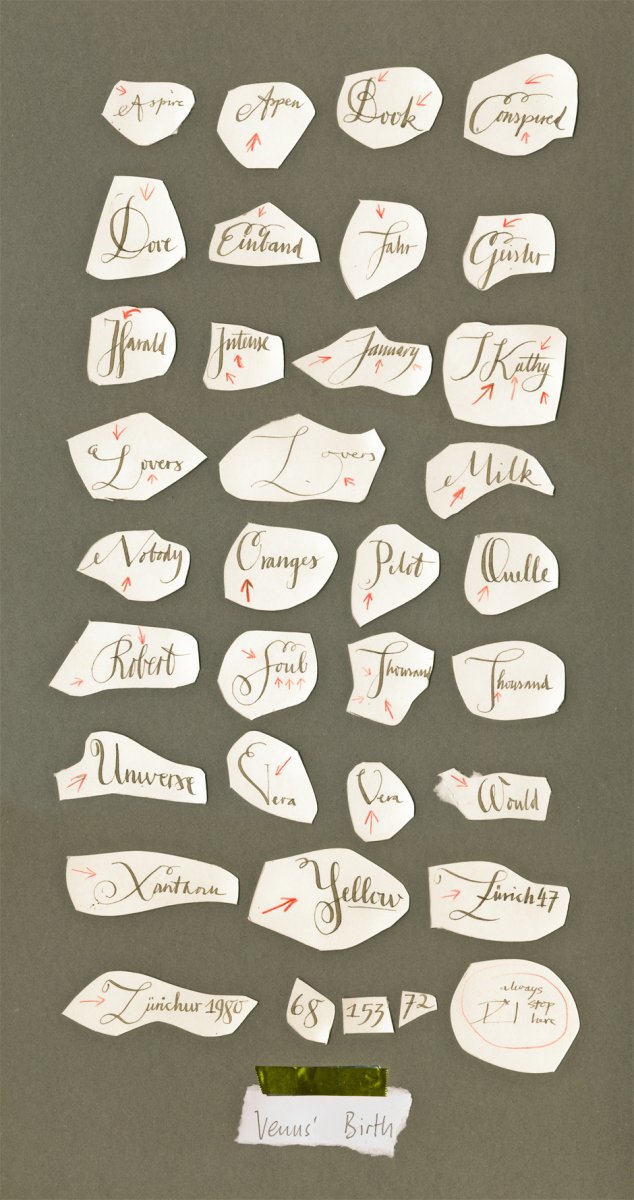 Aspire
Aspen
Book
Conspired
Dove
Einband
Jahr
Geister
Harald
Intense
January
J Kathy
Lovers
Lovers
Milk
Nobody
Oranges
Pilot
Quelle
Robert
Soul
Thousand
Thousand
Universe
Vera
Vera
Would
Xanthorn
Yellow
Zürich 47
Zürichur 1980
68
153
72
always
stop
here
Venus' Birth